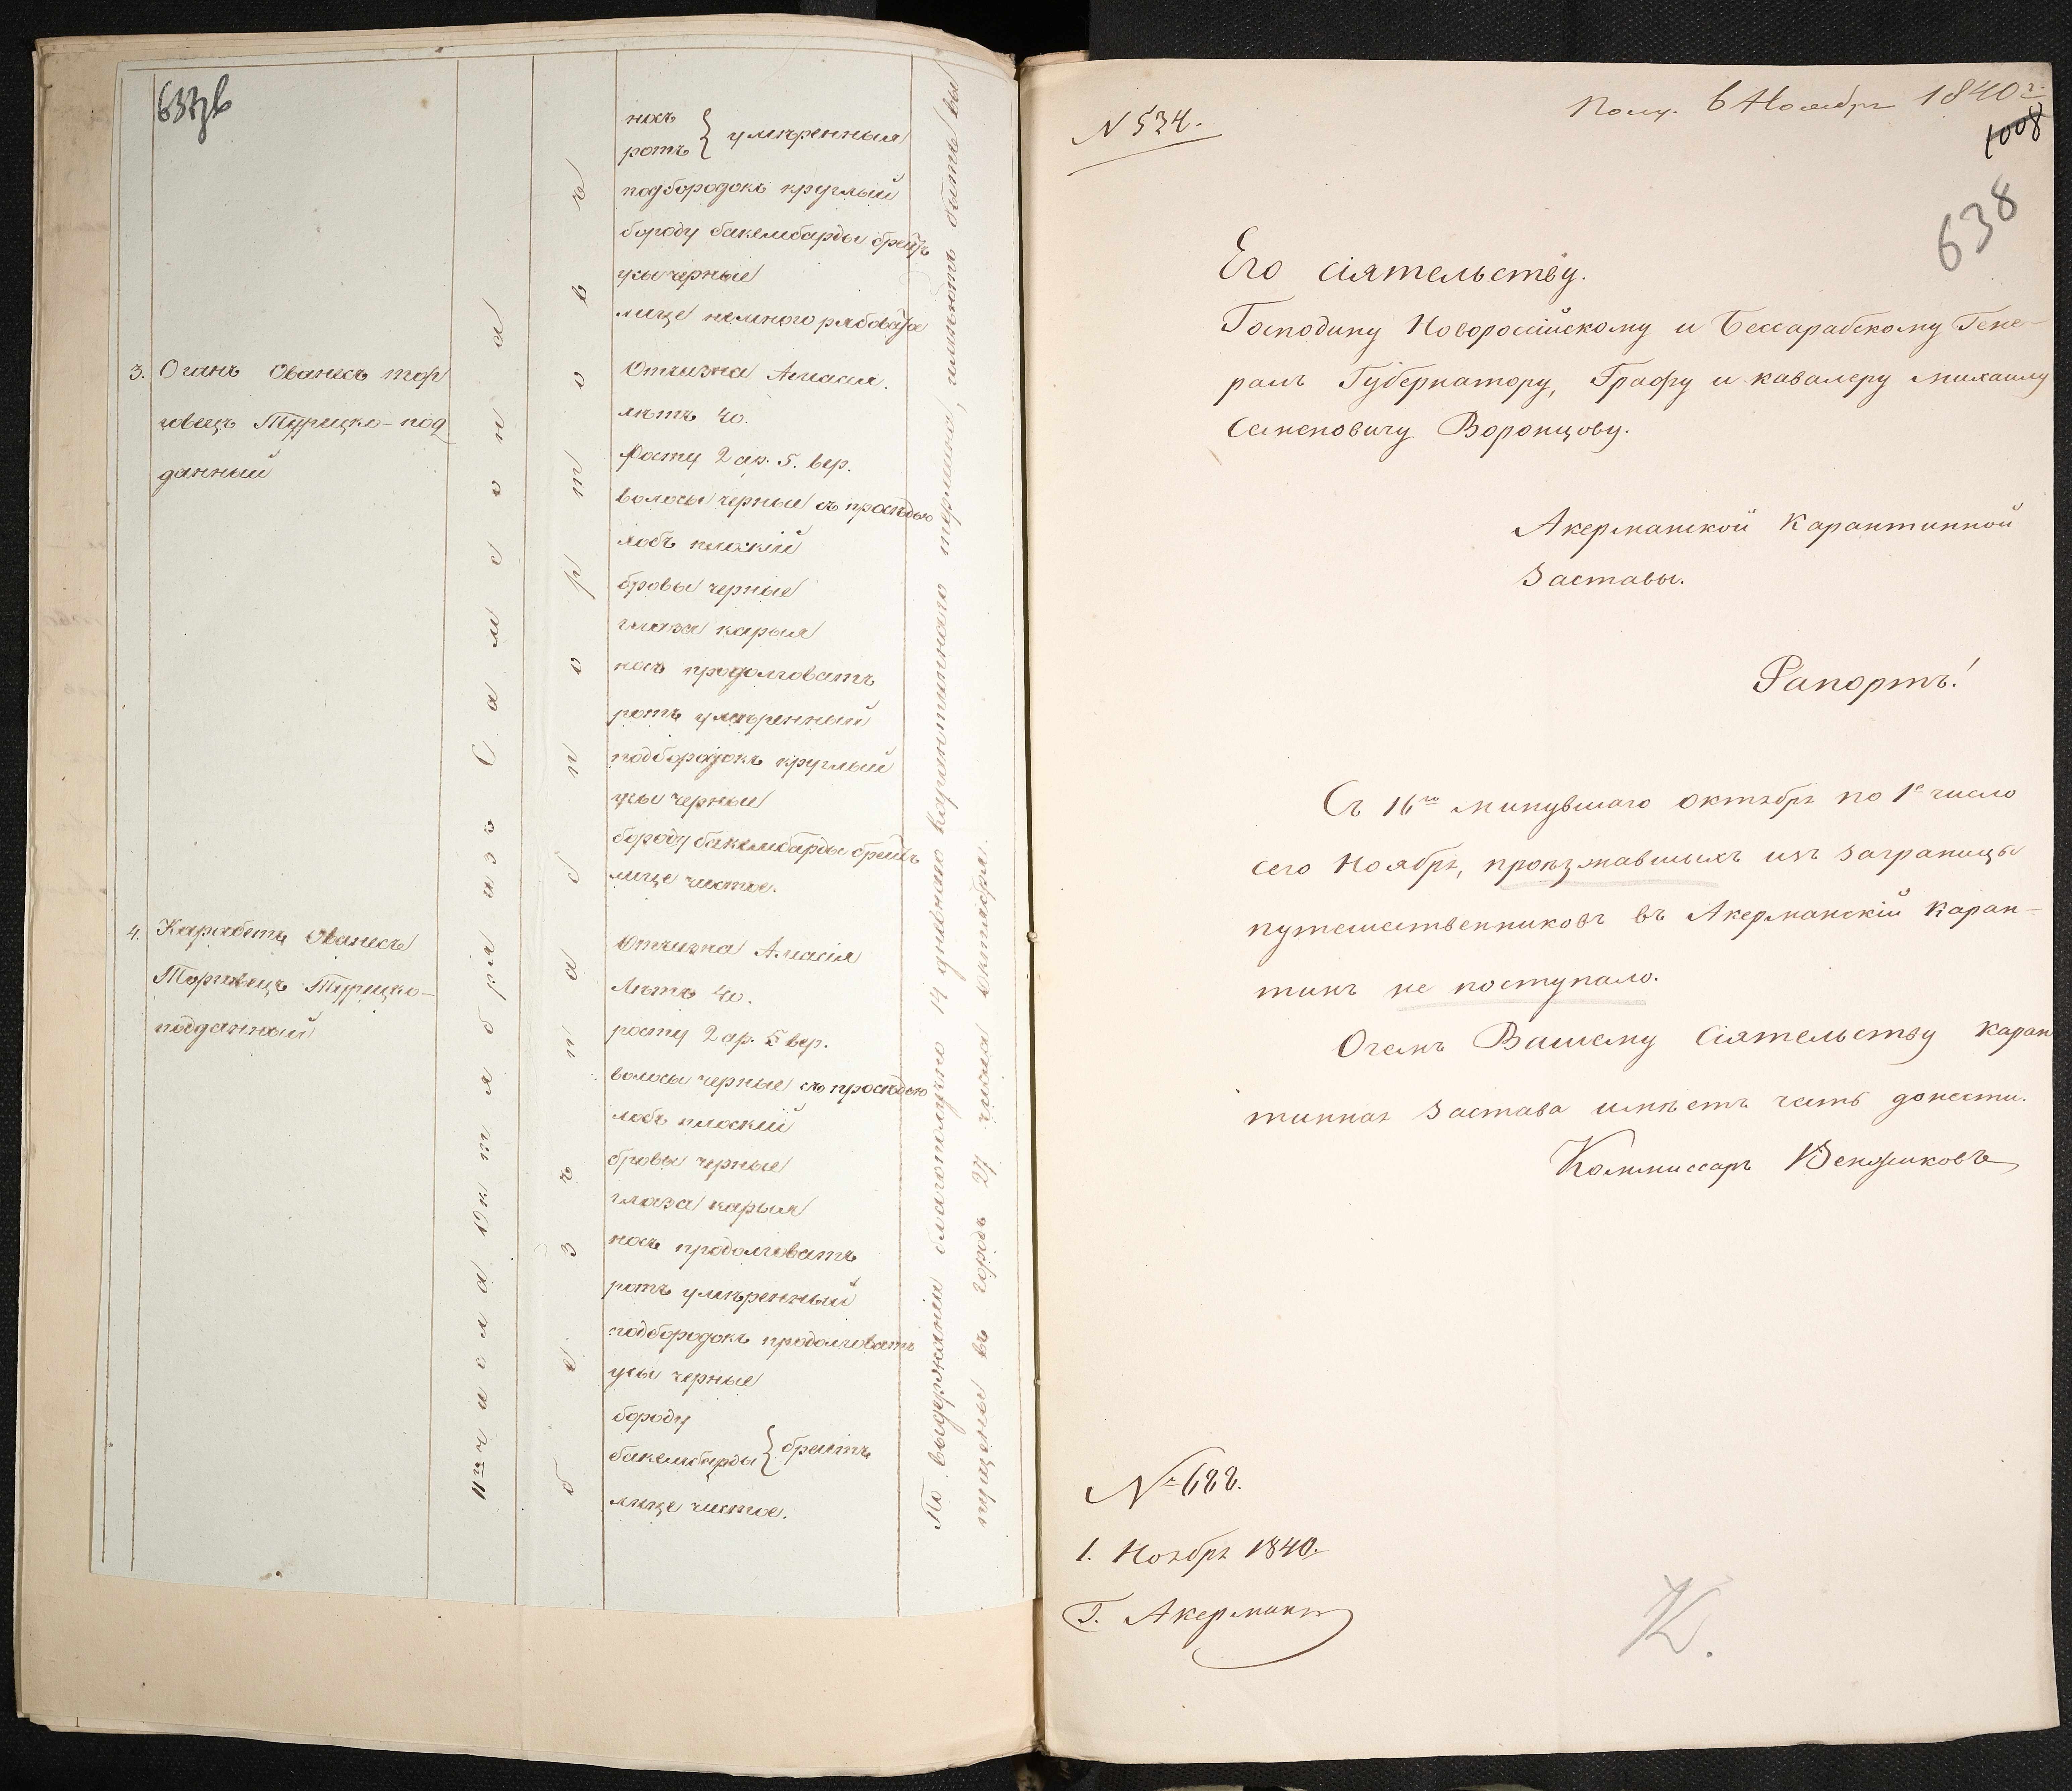 637об
носъ
ротъ } умѣренныя
подбородокъ круглый
бороду бакембарды брѣитъ
усы черные
лице немного рябовато
3. Оганъ Ованесъ тор
говецъ Турецко-под
данный
Отчизна Амасия.
лѣтъ 40.
Росту 2 ар. 5. вер.
волосы черные съ просѣдью
лобъ плоскій
бровы черные
глаза карыя
носъ продолговатъ
ротъ умѣренный
подбородокъ круглый
усы черные
бороду бакембарды брѣитъ
лице чистое.
4. Карабетъ Ованесъ
Торговецъ Турецко-
подданный
Отчизна Амасія
Лѣтъ 40.
росту 2 ар. 5 вер.
волосы черные съ просѣдью
лобъ плоскій
бровы черные
глаза карыя
носъ продолговатъ
ротъ умѣренный
подбородокъ продолговатъ
усы черные
бороду
бакембарды } брѣитъ
лице чистое.
11го числа Октября изъ Самсона
безъ паспортовъ
По выдержаніи благополучно 14 дневнаго карантиннаго термина, имѣютъ быть вы
пущены въ городъ 27 числа Октября.
N 534.
Полу. 6 Ноября 1840 г.
1008
638
Его сіятельству.
Господину Новороссійскому и Бессарабскому Гене-
ралъ Губернатору, Графу и кавалеру михаилу
Семеновичу Воронцову.
Акерманской Карантинной
Заставы.
Рапортъ!
Съ 16го минувшаго октября по 1е число
сего Ноября, проѣзжавшыхъ изъ заграницы
путешественниковъ въ Акерманскій Каран-
тинъ не поступало.
О чемъ Вашему Сіятельству каран
тинная застава имѣетъ честь донести.
Коммиссаръ
№ 622.
1. Ноября 1840.
Г. Акерманъ
К.